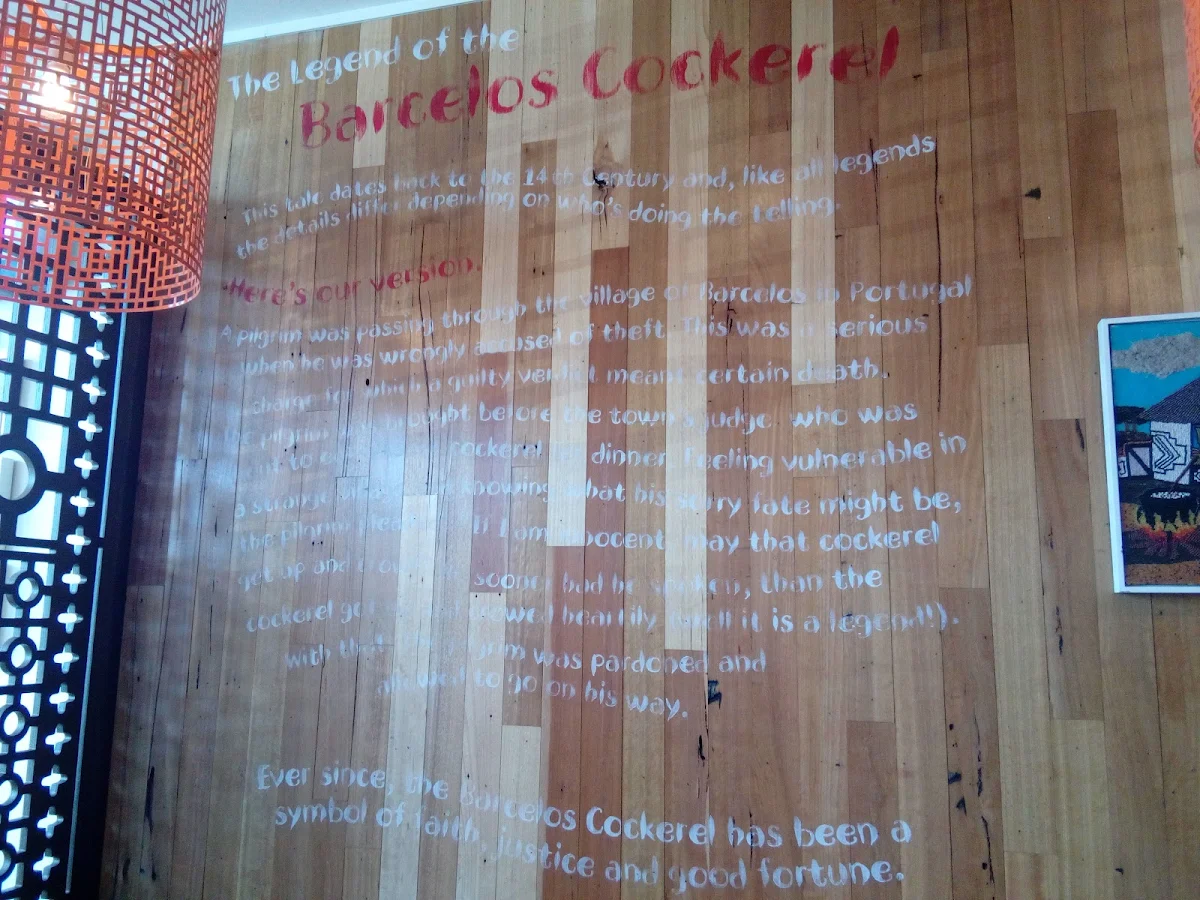 The Legend of the
Barcelos Cockerel
This tale dates back to the 14th Century and, like all legends
the details differ depending on who's doing the telling.
Here's our version.
A pilgrim was passing through the village of Barcelos in Portugal
when he was wrongly accused of theft. This was a serious
charge for which a guilty verdict meant certain death.
The pilgrim was brought before the town's judge who was
to cockerel dinner. Feeling vulnerable in
a strange knowing what his scary fate might be,
the pilgrim If I am innocent, may that cockerel
get up and crow. No sooner had he spoken, than the
cockerel got crowed heartily (well it is a legend!).
with that pilgrim was pardoned and
allowed to go on his way.
Ever since, the Barcelos Cockerel has been a
symbol of faith, justice and good fortune.